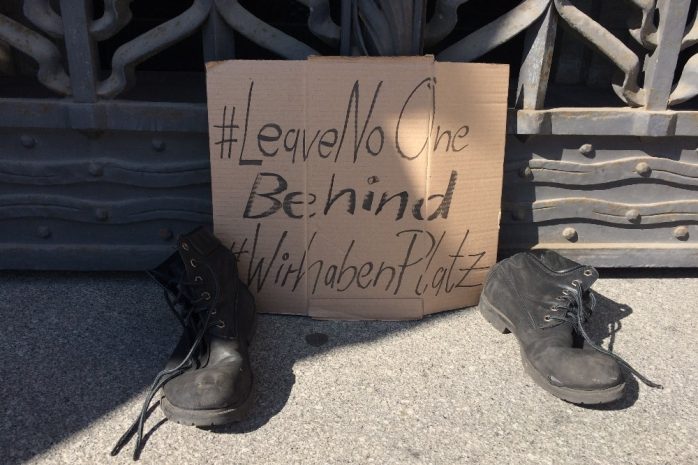 #LeaveNo One
Behind
#WirhabenPlatz